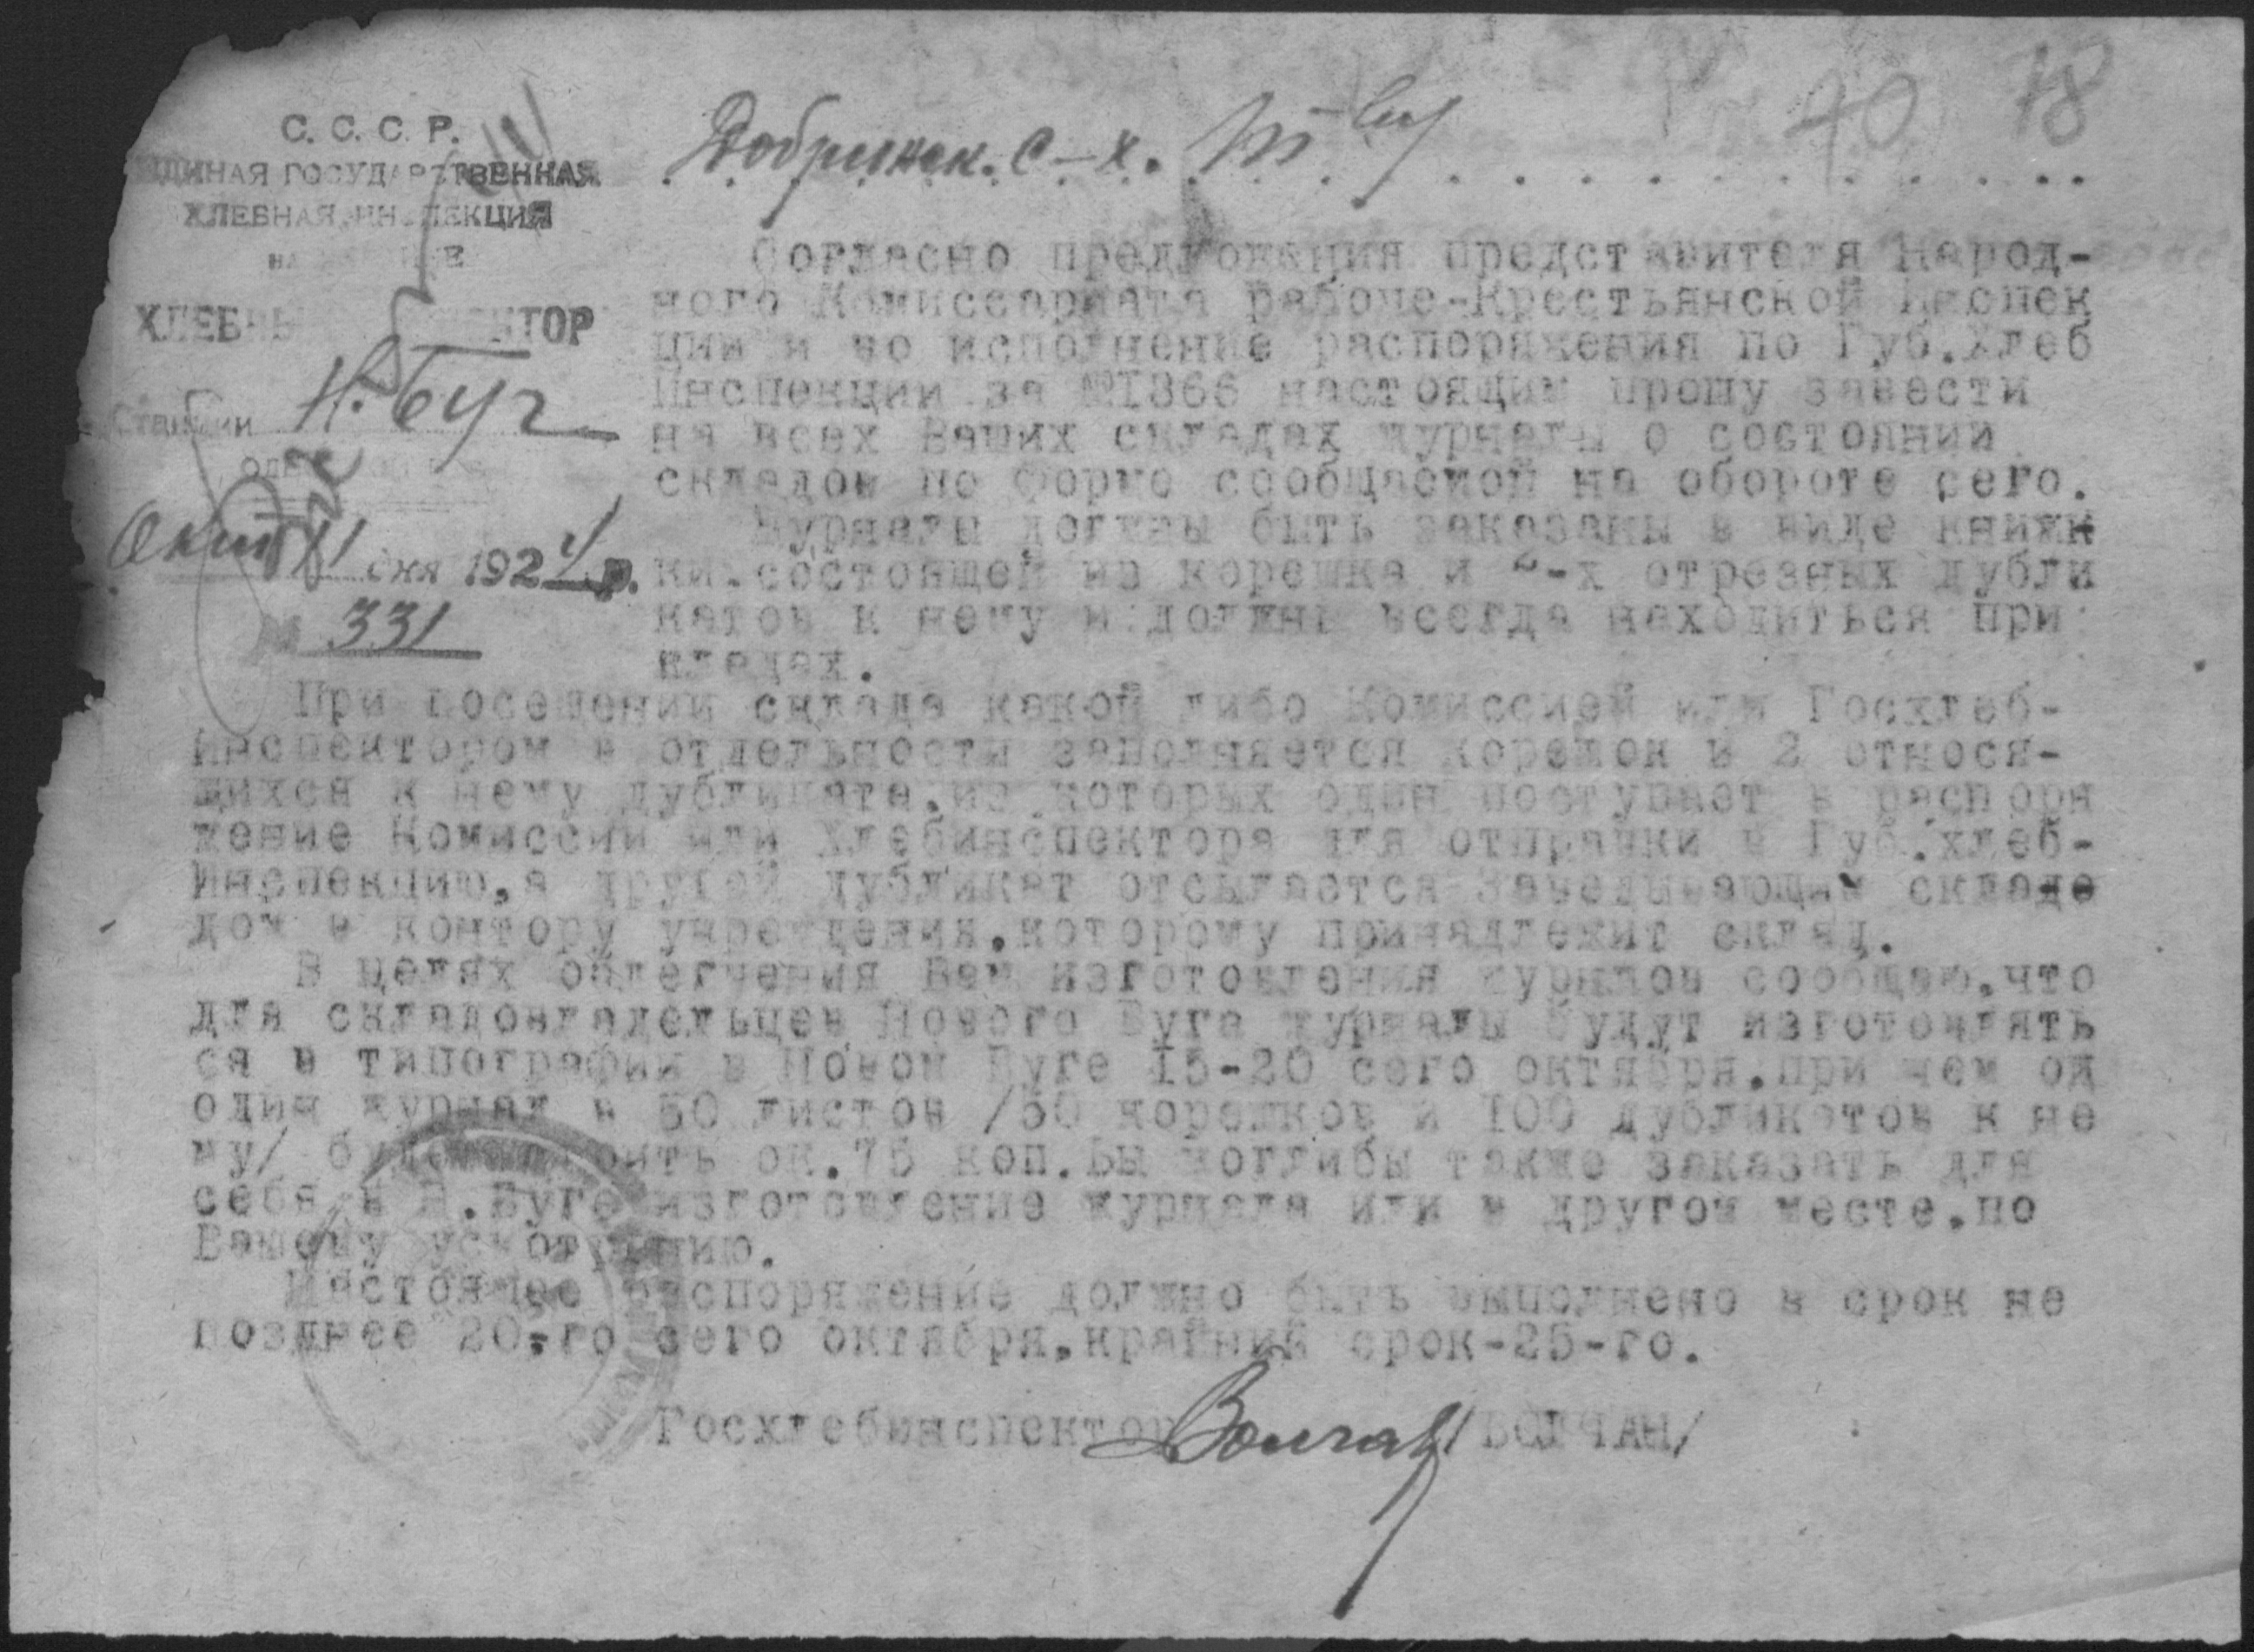 40 78
С. С. С. Р.
ЕДИНАЯ ГОСУДАРСТВЕННАЯ
ХЛЕБНАЯ ИНСПЕКЦИЯ
ХЛЕБНЫЙ ИНСПЕКТОР
Станции Н. Буг
Окт 11 дня 1924 р.
№ 331
Добринск. с-х. Т-ву
Согласно предложения представителя Народ-
ного Комиссариата рабоче-Крестьянской Инспек
ции и во исполнение распоряжения по Губ.Хлеб
Инспекции за №1366 настоящим прошу завести
на всех Ваших складах журналы о состоянии
складов по форме сообщаемой на обороте сего.
Журналы должны быть заказаны в виде книжк
ки.состоящей из корешка и 2-х отрезных дубли
катов к нему и должны всегда находиться при
кладах.
При посещении склада какой либо Комиссией или Госхлеб-
инспектором в отдельности заполняется корешок и 2 относя-
щихся к нему дубликата,из которых один поступает в распоря
жение Комиссии или Хлебинспектора для отправки в Губ.хлеб-
Инспекцию,а другой дубликат отсылается Заведывающим складе
дом в контору учреждения,которому принадлежит склад.
В целях облегчения Вам изготовления журналов сообщаю,что
для складовладельцев Нового Буга журналы будут изготовлять
ся в типографии в Новом Буге 15-20 сего октября,при чем од
один журнал в 50 листов /50 корешков и 100 дубликатов к не
му/ будет стоить ок.75 коп.Вы моглибы также заказать для
себя в Н.Буге изготовление журнала или в другом месте,по
Вашему усмотрению.
Настоящее распоряжение должно быть выполнено в срок не
позднее 20-го сего октября,крайний срок-25-го.
Госхлебинспектор Волчан /ВОЛЧАН/